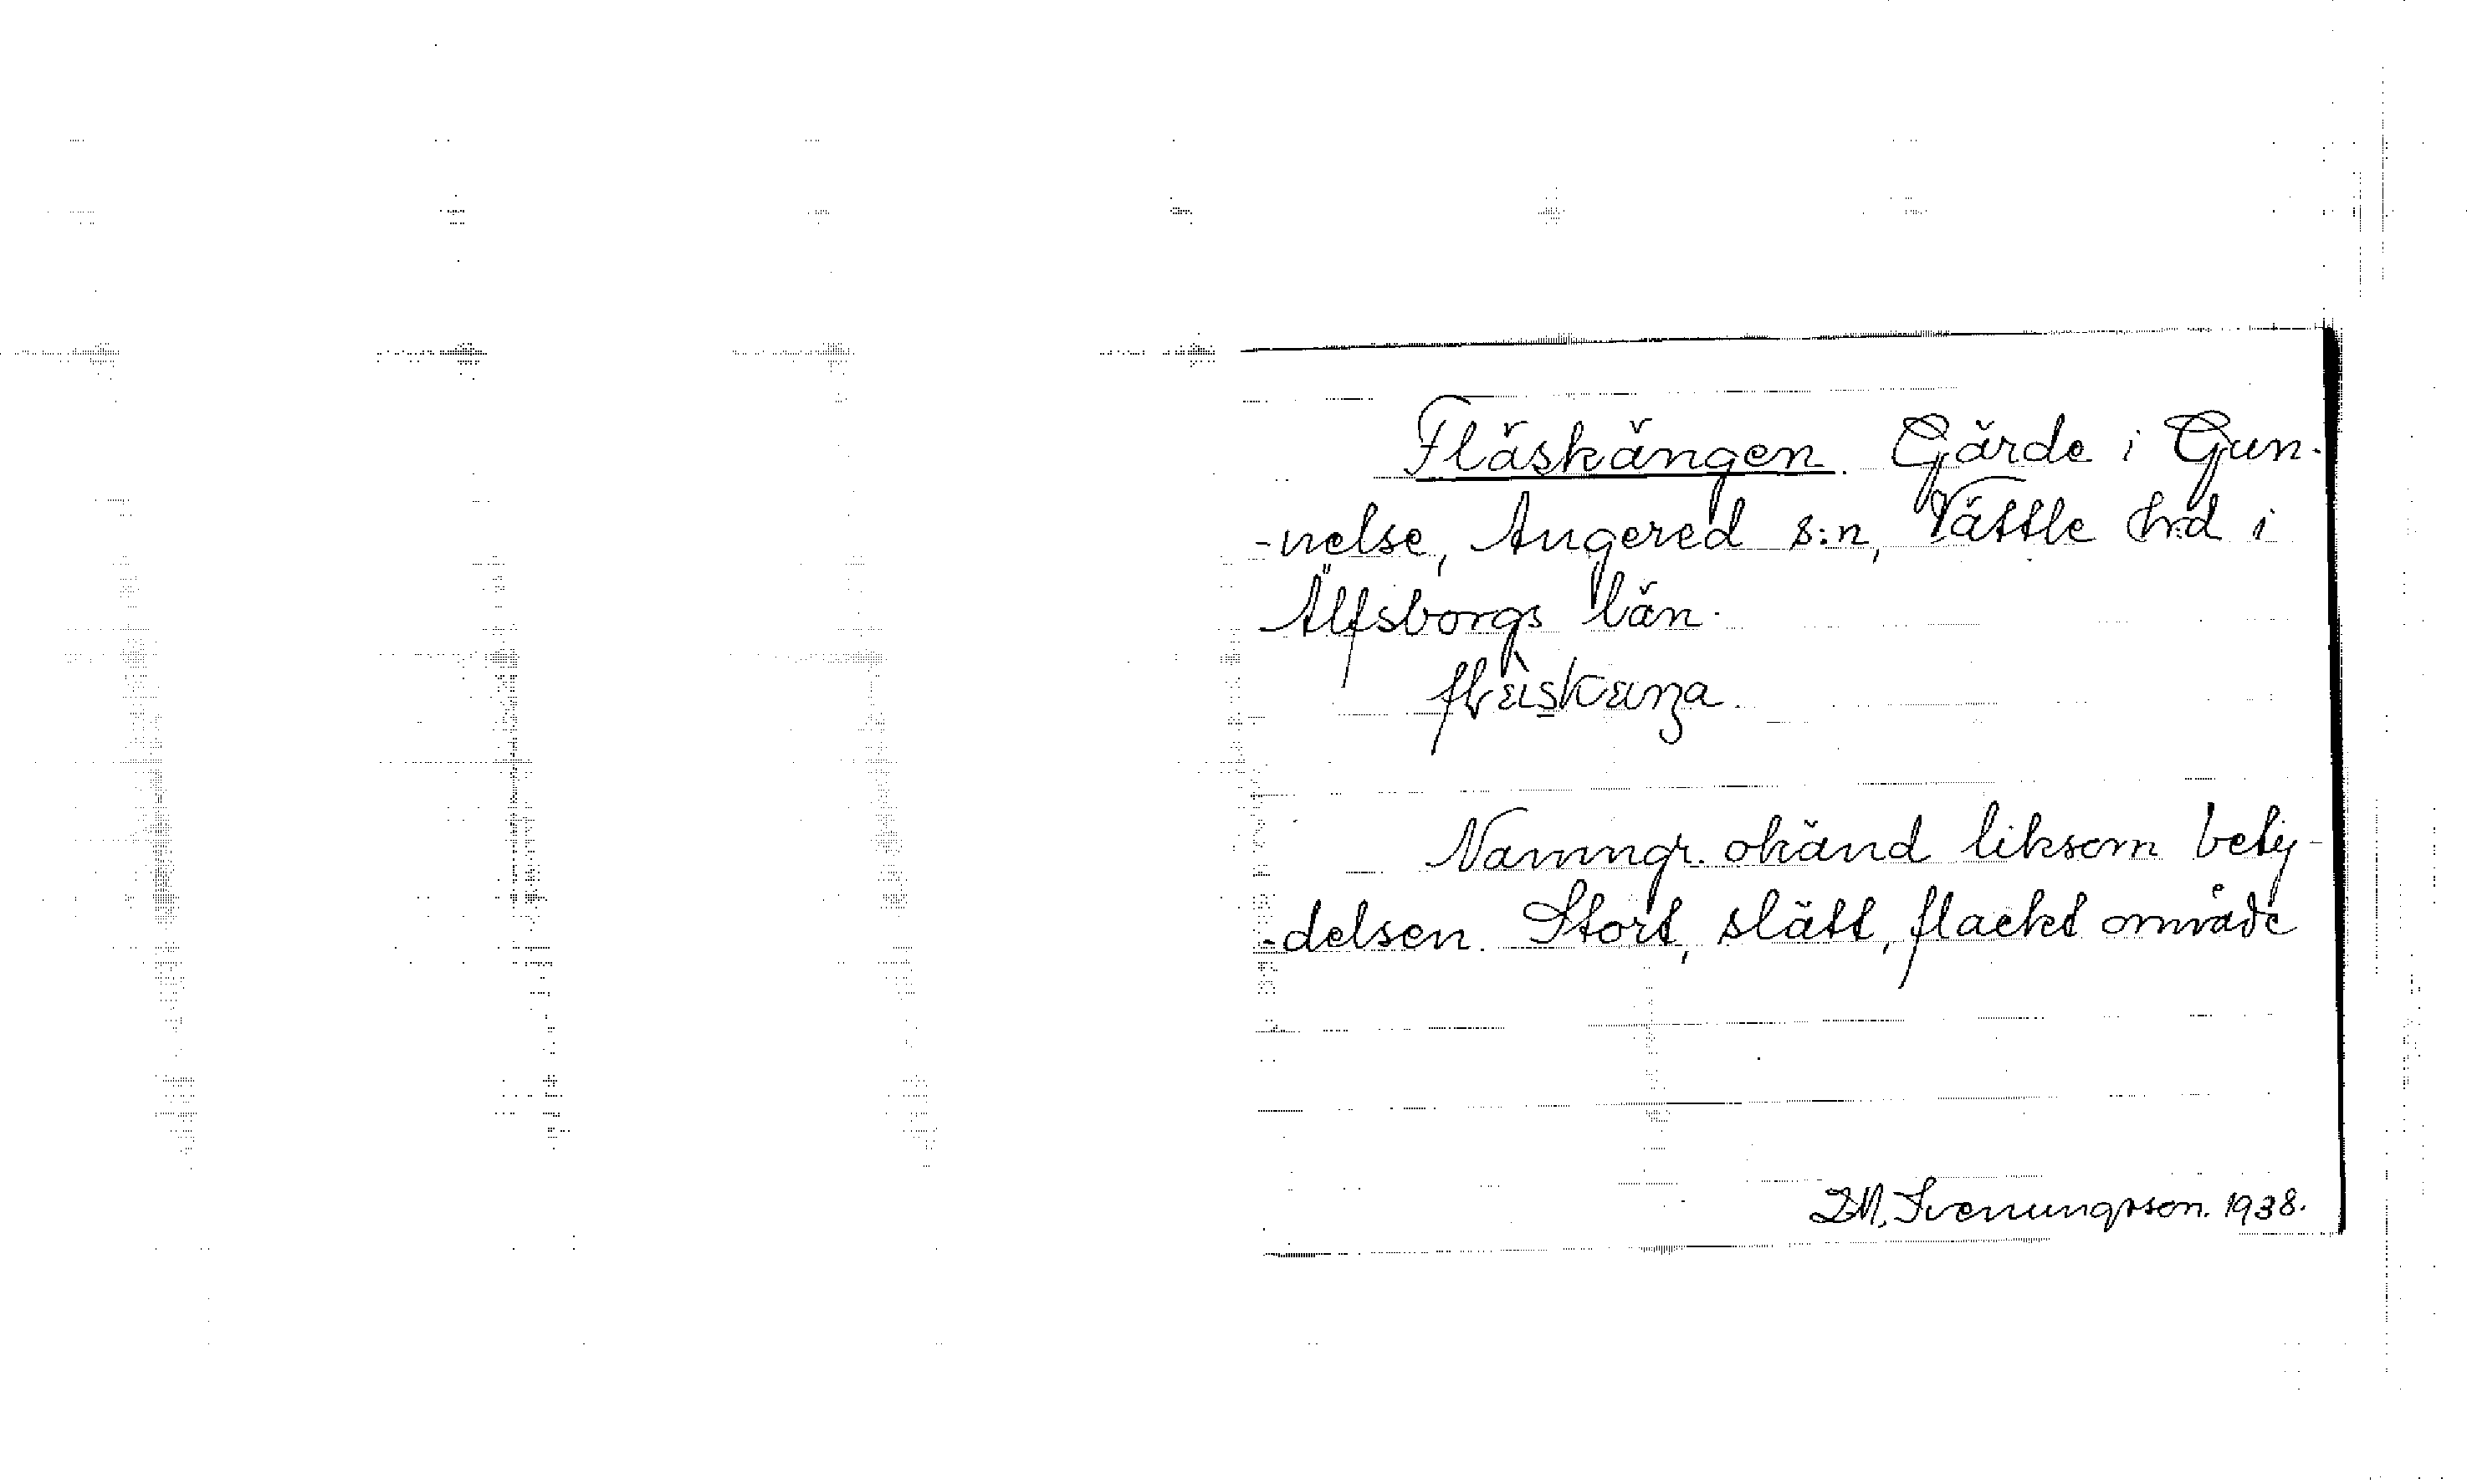 Fläskängen. Gärde i Gun-
-nelse, Angered s:n, Vättle hrd i
Älfsborgs län.
Namngr. okänd liksom bety-
-delsen. Stort, slätt, flackt område
I.M. Svenungsson. 1938.